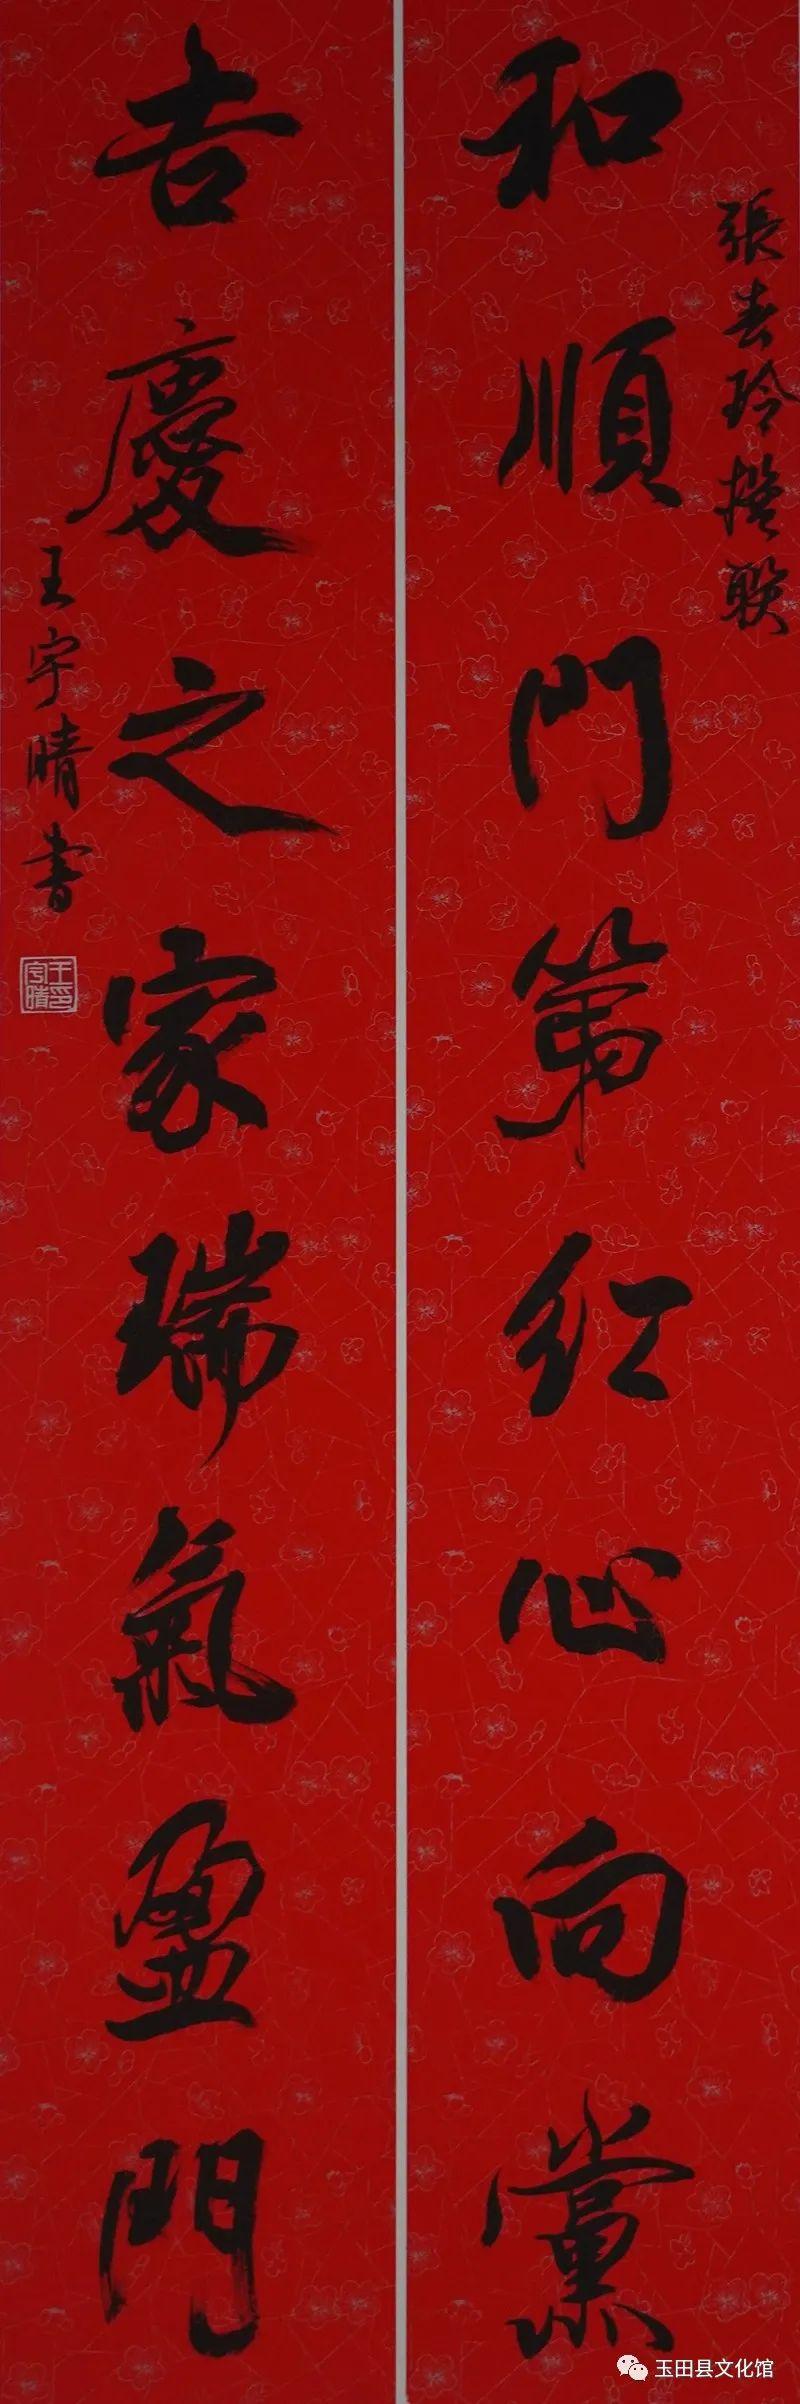 張春玲撰联
和順門第红心向黨
吉慶之家瑞氣盈門
王宇晴書
王宇晴印
玉田县文化馆